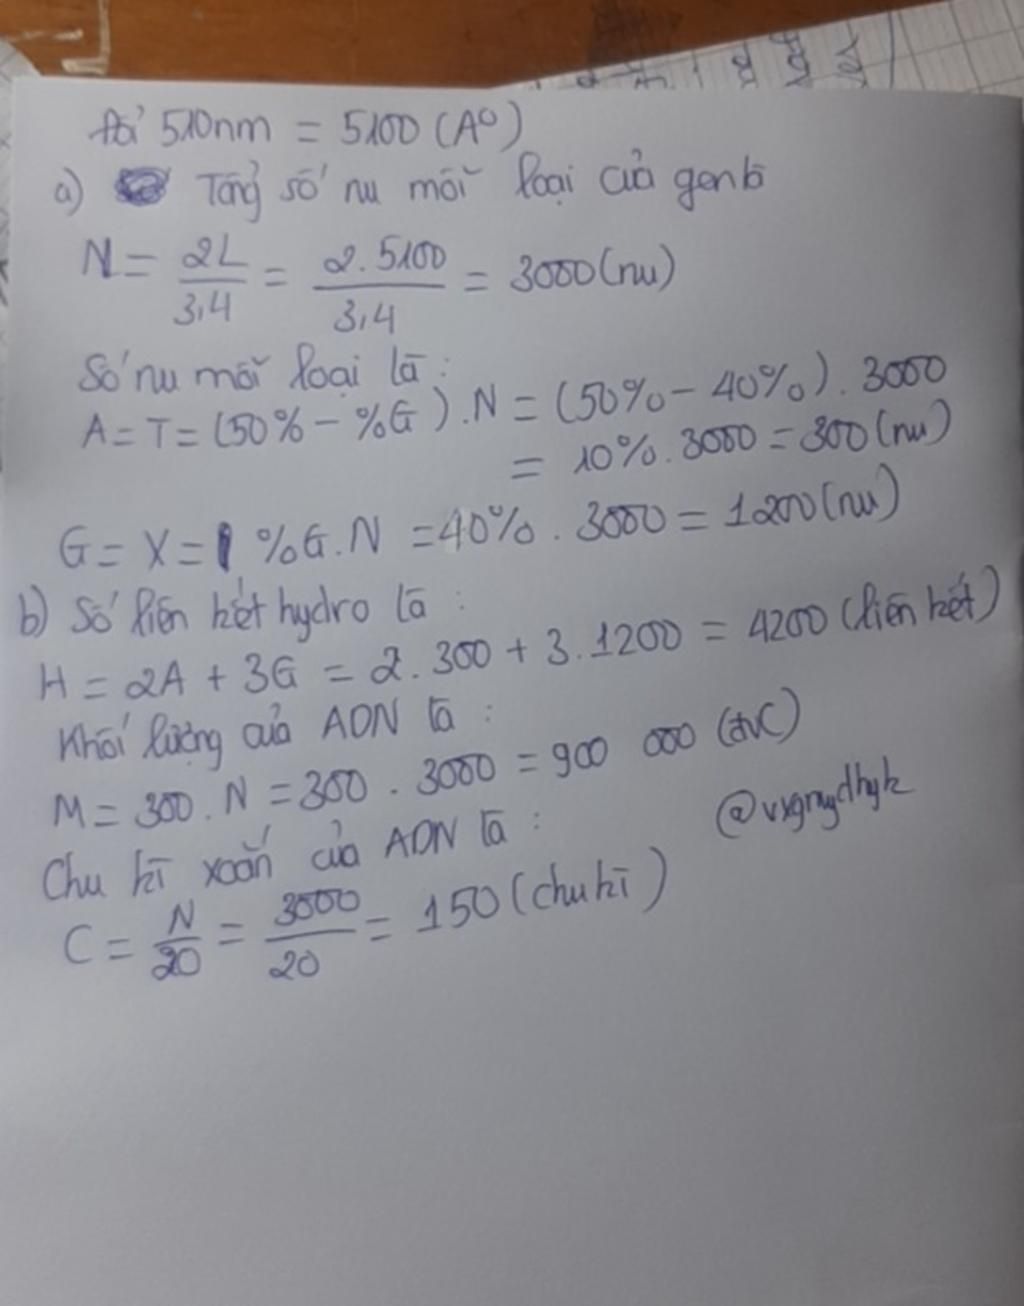 Đổi 510nm = 5100 (A⁰)
a) Tổng số nu mỗi loại của gen là
N = 2L/3,4 = 2.5100/3,4 = 3000 (nu)
Số nu mỗi loại là :
A = T = (50% - %G).N = (50% - 40%).3000
= 10%.3000 = 300 (nu)
G = X = %G.N = 40%.3000 = 1200 (nu)
b) Số liên kết hydro là :
H = 2A + 3G = 2.300 + 3.1200 = 4200 (liên kết)
Khối lượng của ADN là :
M = 300.N = 300.3000 = 900 000 (đvC)
@vxgnydhyk
Chu kì xoắn của ADN là :
C = N/20 = 3000/20 = 150 (chu kì)